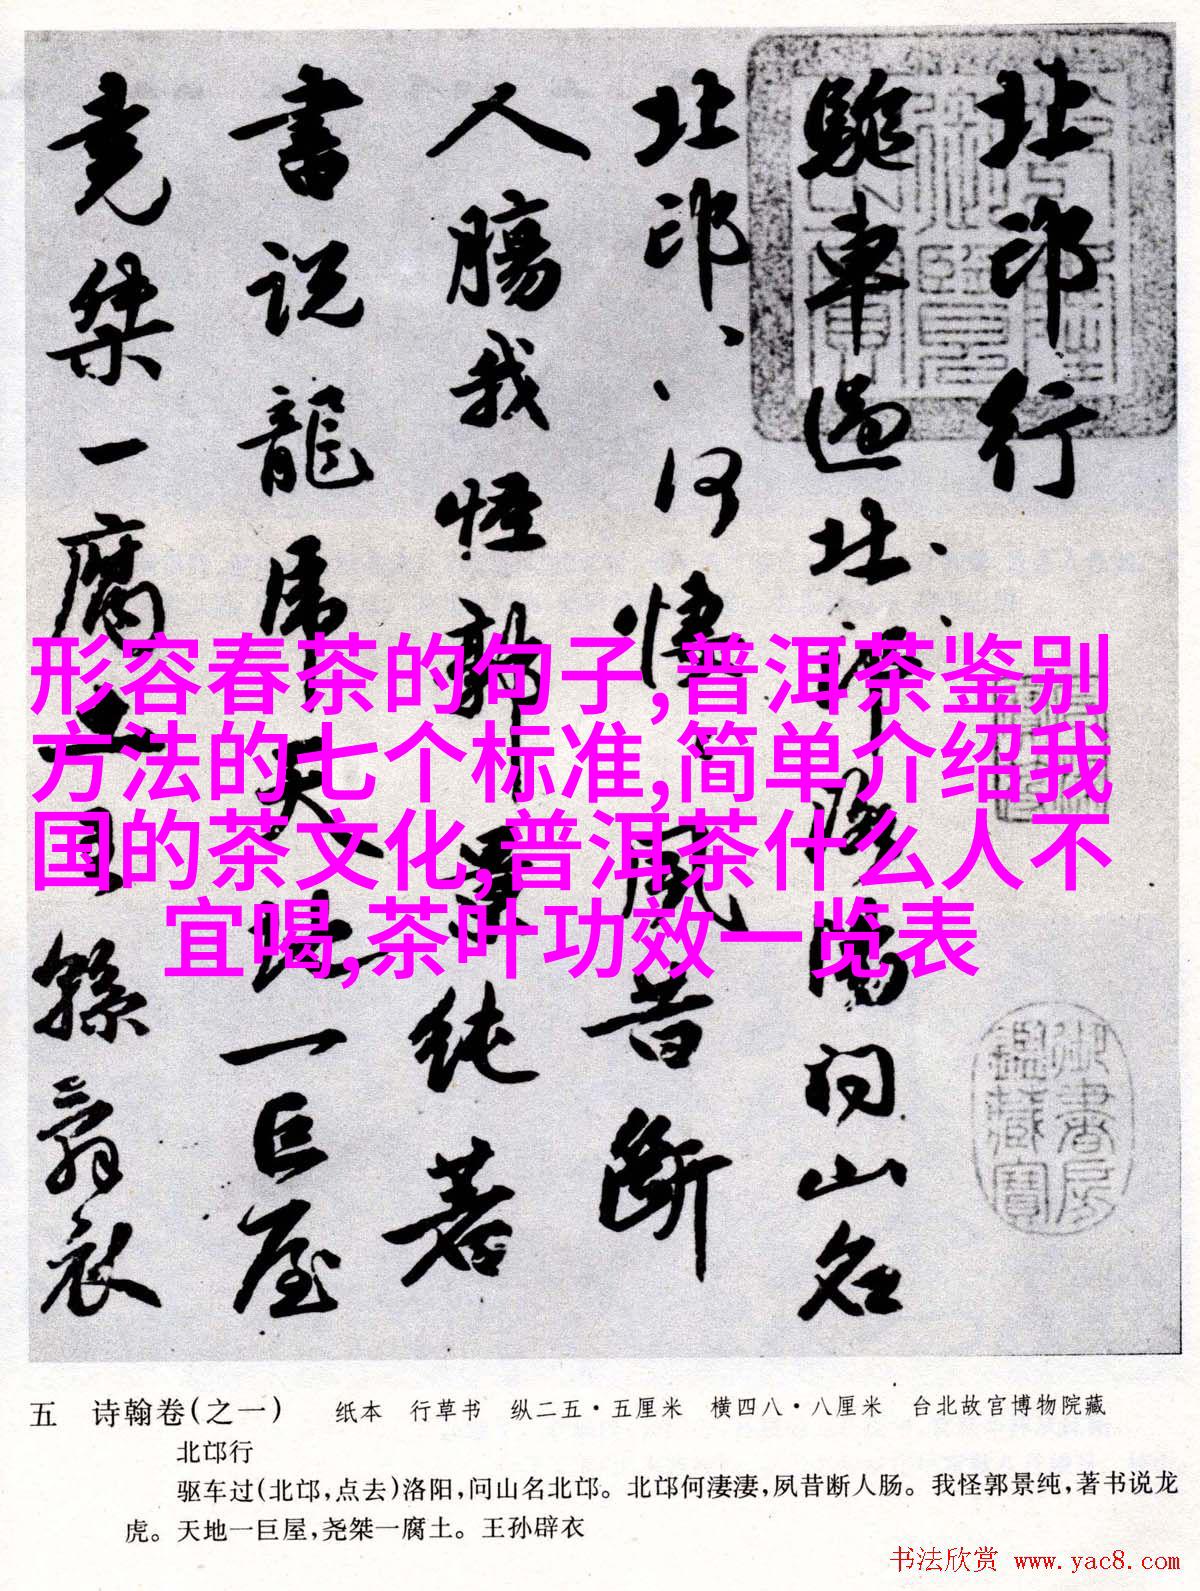 北邙行
驱車過北邙洛陽問山名
北邙、、何悽、風昔斷
人腸我怪郭景純著
書说龍虎天地一巨屋
堯桀一腐土王孫辟衣
形容春茶的句子,普洱茶鉴别
方法的七个标准,简单介绍我
国的茶文化,普洱茶什么人不
宜喝,茶叶功效一览表
御書房鑑藏寶
五 诗翰卷(之一) 纸本 行草书 纵二五·五厘米 横四八·八厘米 台北故宫博物院藏
北邙行
驱车过(北邙,点去)洛阳,问山名北邙。北邙何淒淒,夙昔断人肠。我怪郭景纯,著书说龙
虎。天地一巨屋,尧桀一腐土。王孙辟衣
书法欣赏 www.yac8.com